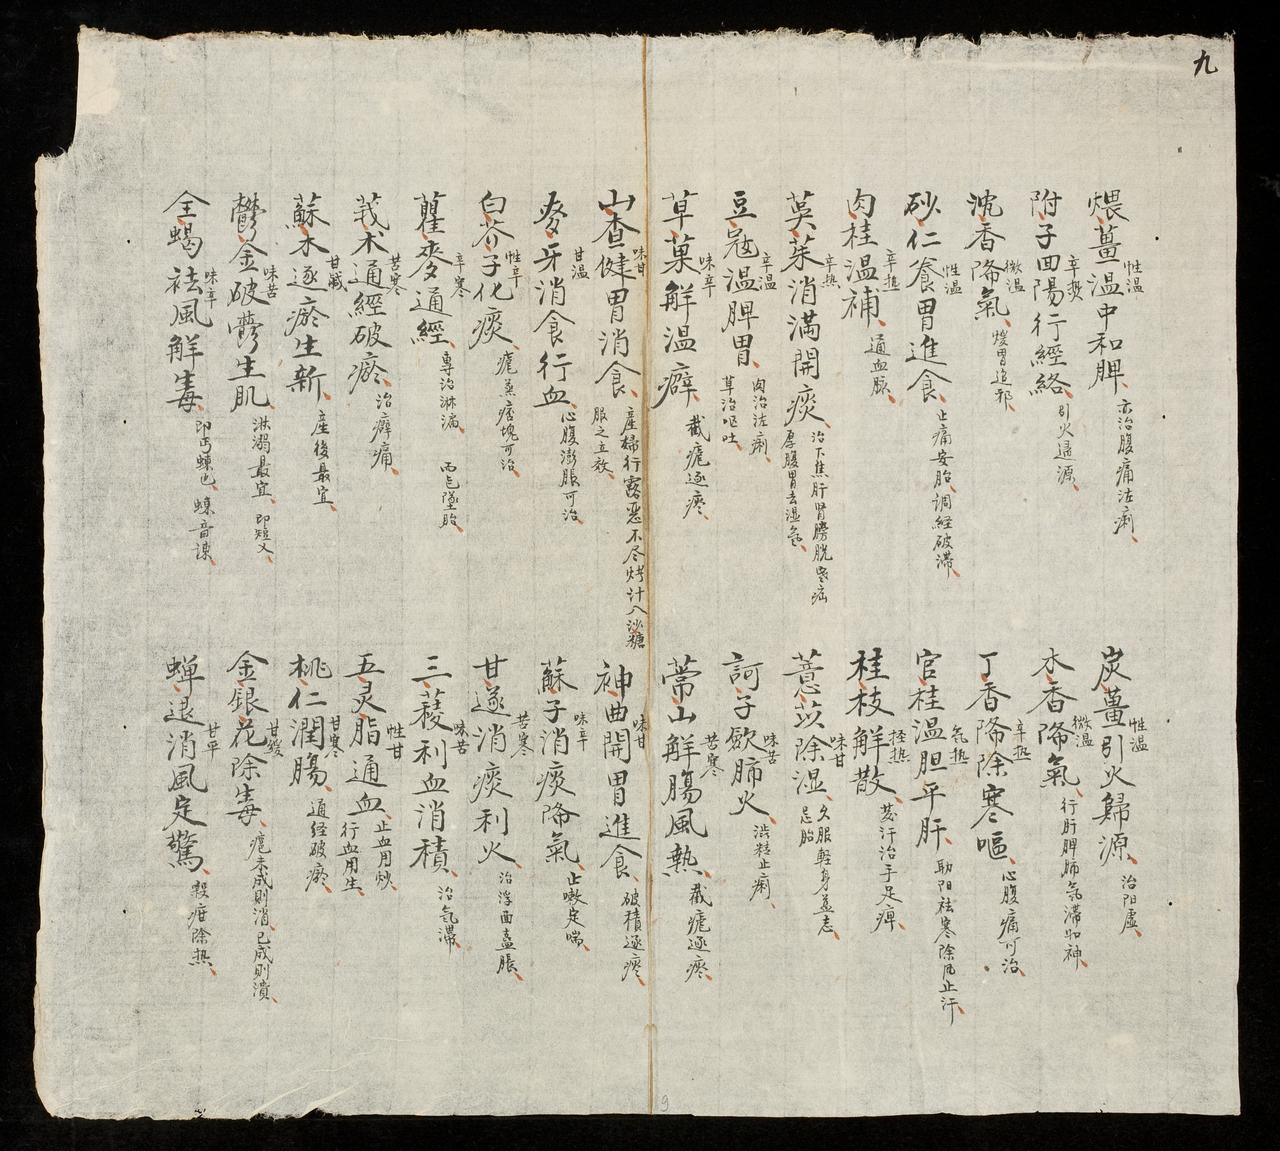 九
煨薑溫中和脾 性溫 亦治腹痛泄痢
附子回陽行經絡 辛熱 引火過源
沈香降氣 微溫 煖胃追邪
砂仁養胃進食 性溫 止痛安胎調経破滞
肉桂溫補 辛热 通血脉
茱茱消满開痰 辛热 治下焦肝腎膀胱寒疝 厚腹胃去湿氣
豆寇溫脾胃 辛溫 肉治泄痢 草治呕吐
草菓解溫癖 味辛 截瘧逐瘀
山查健胃消食 味甘 產婦行露惡不尽烤汁入沙糖 服之立效
麥牙消食行血 甘温 心腹澎脹可治
白芥子化痰 性辛 瘧蒸痞塊可治
蘿麥通經 辛寒 專治淋漏 而乞墜胎
莪术通經破瘀 苦寒 治癖痛
蘇木逐瘀生新 甘醎 產後最宜
鬱金破鬱生肌 味苦 淋溺最宜 即短乂
全蝎袪風解毒 味辛 即丐蝀也 蝀音諌
炭薑引火歸源 性温 治阳虛
木香降氣 微温 行肝脾肺氣滞如神
丁香降除寒嘔 辛热 心腹痛可治
官桂温胆平肝 気热 助阳祛寒除風止汗
桂枝解散 轻热 發汗治手足痺
薏苡除湿 味甘 久服軽身益志 忌胎
訶子歛肺火 味苦 澁精止痢
常山解腸風熱 苦寒 截瘧逐瘀
神曲開胃進食 味甘 破積逐瘀
蘇子消痰降氣 味辛 止嗽定喘
甘遂消痰利火 苦寒 治浮面蠱脹
三稜利血消積 味苦 治気滞
五灵脂通血 性甘 止血用炒 行血用生
桃仁潤腸 甘寒 通経破瘀
金銀花除毒 甘緩 瘧未成則消 已成則潰
蝉退消風定驚 甘平 殺疳除热
9